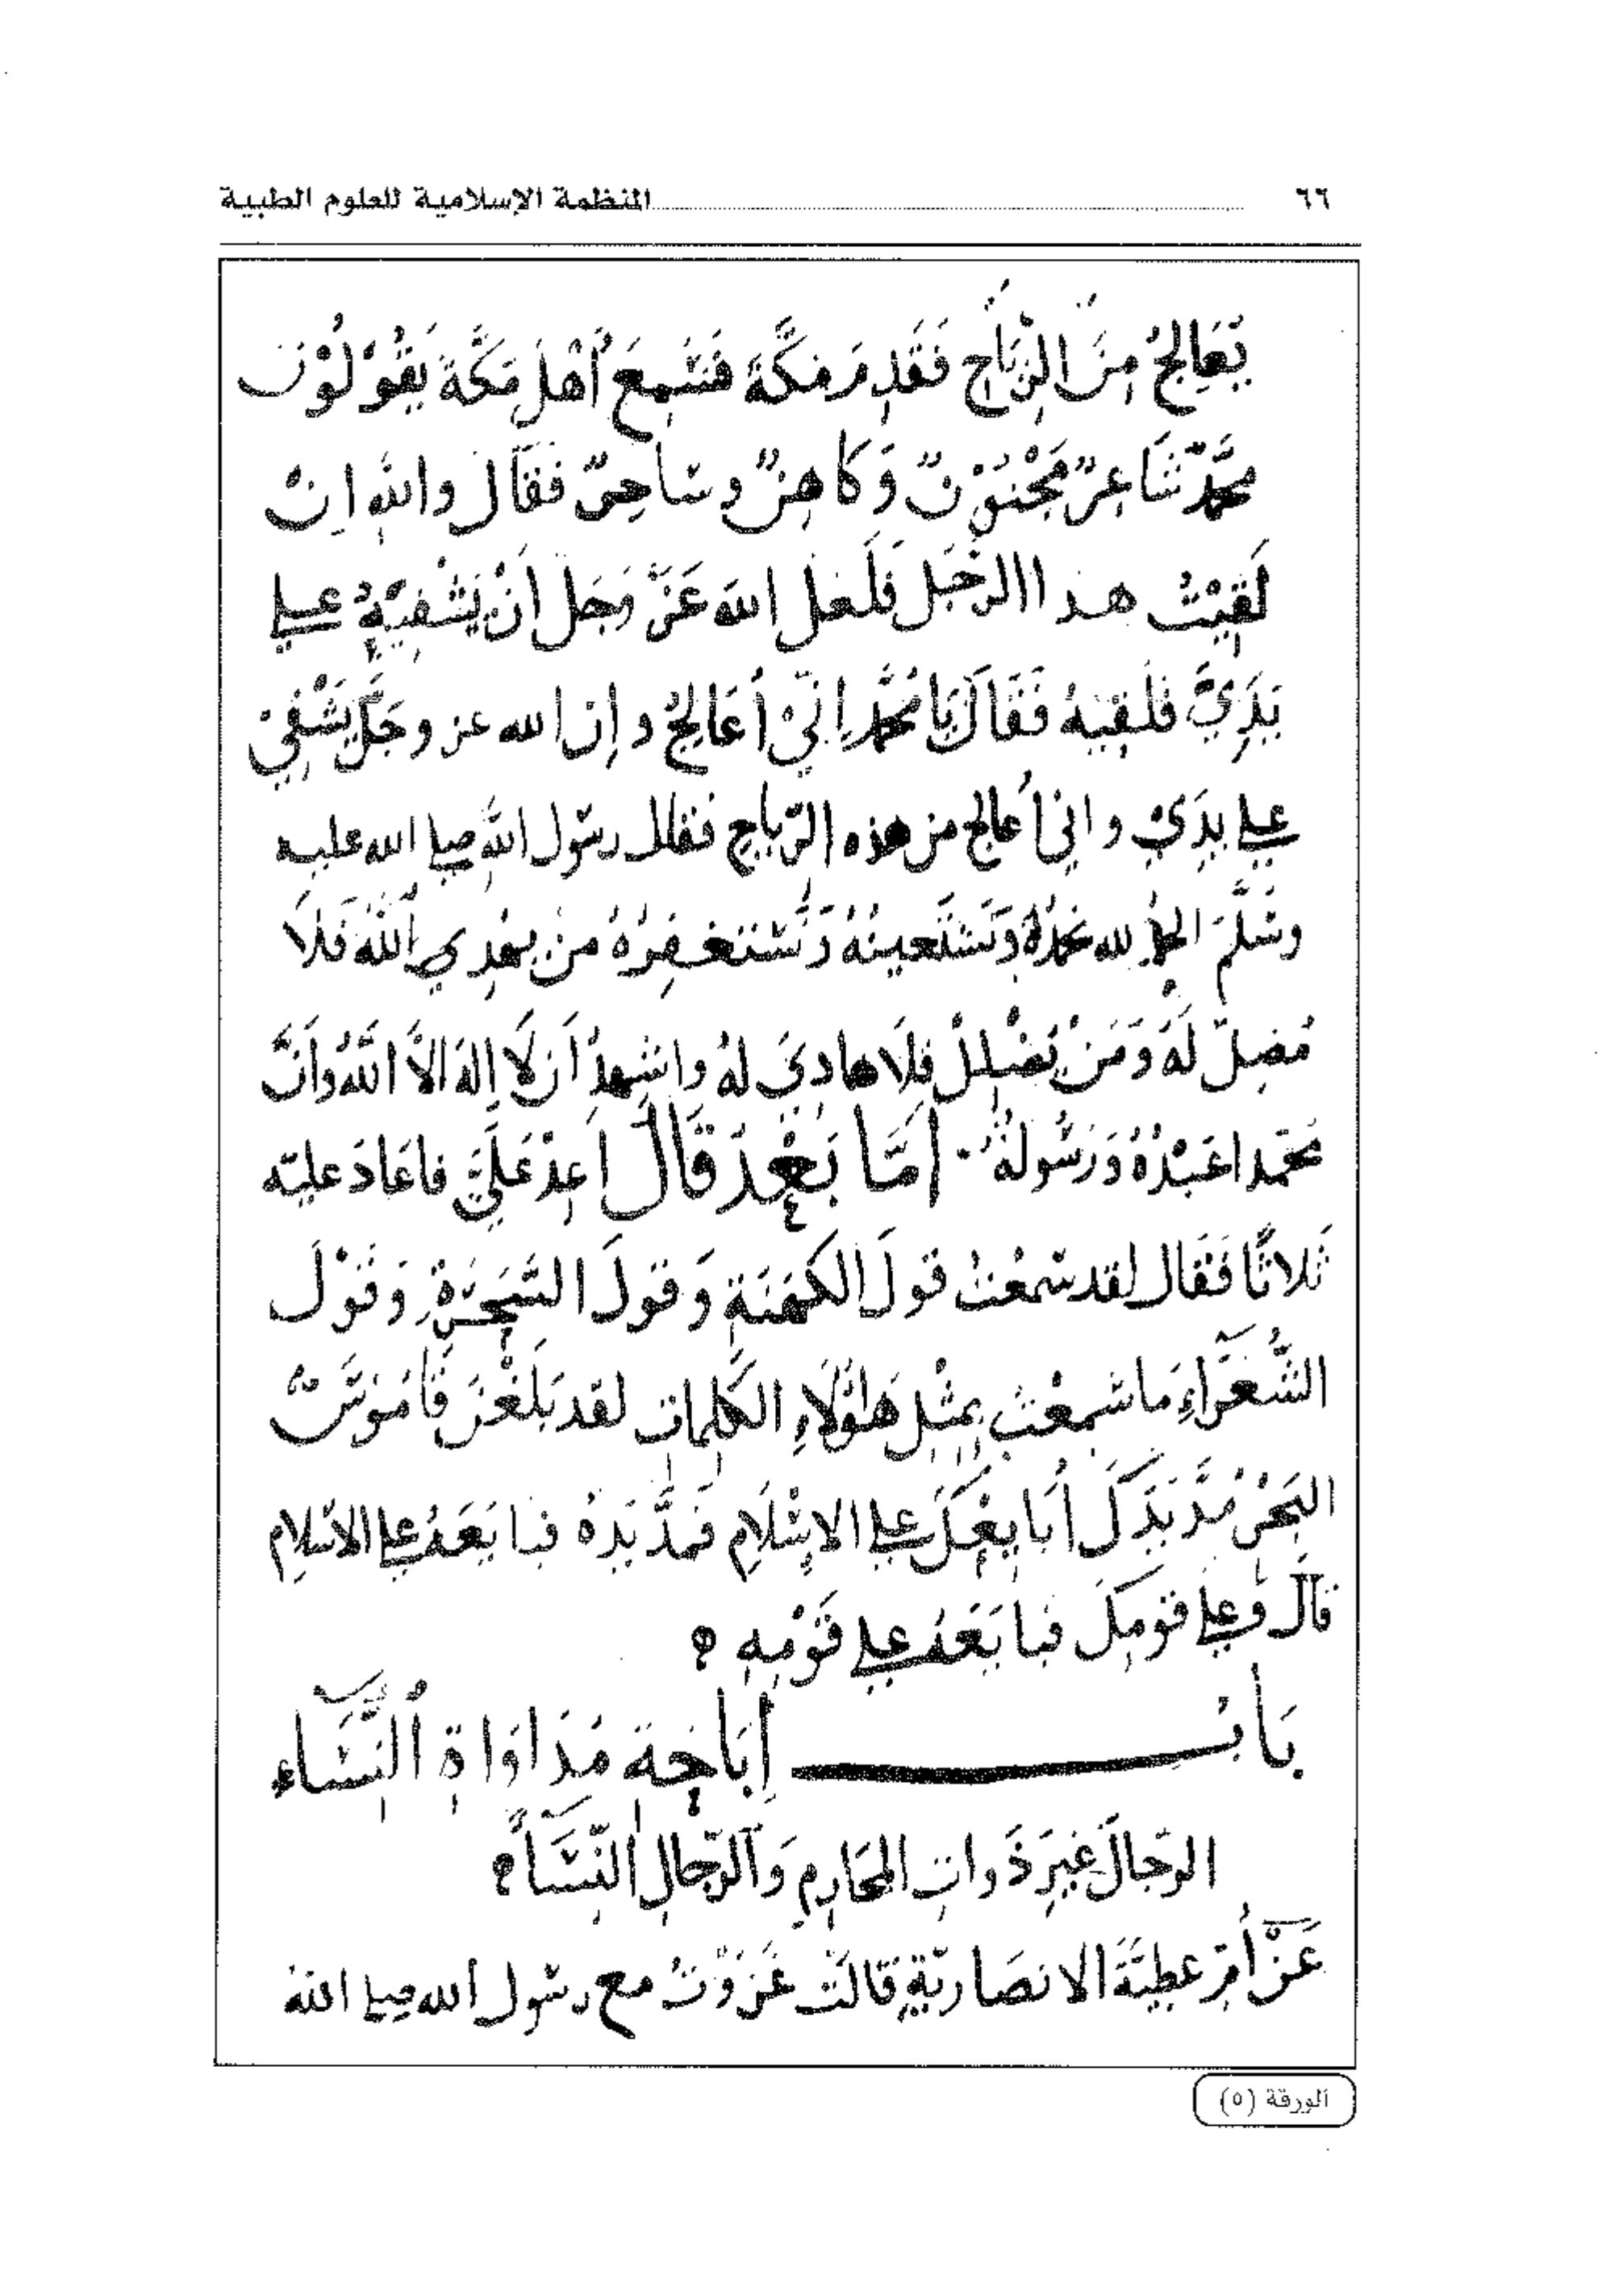 ٦٦ المنظمة الإسلامية للعلوم الطبية
يُعَالِجُ مِنَ الرِّيَاحِ فَقَدِمَ مَكَّةَ فَسَمِعَ أَهْلَ مَكَّةَ يَقُوْلُوْنَ
مُحَمَّدٌ شَاعِرٌ مَجْنُوْنٌ وَكَاهِنٌ وساحِرٌ فَقَالَ واللهِ انْ
لَقِيْتُ هذا الرَّجُلَ فَلَعَلَّ اللهَ عَزَّ وَجَلَّ انْ يَشْفِيَهُ على
يَدَيَّ فَلَقِيَهُ فَقَالَ يَا مُحَمَّدُ اِنِّيْ أُعَالِجُ وإن الله عز وجَلَّ يَشْفِيْ
على يَدَيَّ واني أُعالج من هذه الرِّيَاحِ فقال رسُول اللهِ صلى الله عليه
وسَلَّمَ الحمْدُ لله نَحْمَدُهُ وَنَسْتَعينُهُ وَنَسْتَغفِرُهُ منْ يهْدِي اللهُ فَلَا
مُضِلَّ لَهُ وَمَنْ يُضْلِلْ فَلَا هَادِيَ لَهُ واشْهدُ أَن لَا إِلهَ الَّا اللهُ وَأَنَّ
مُحَمّدا عَبْدُهُ وَرَسُولُهُ امَّا بَعْدُ قَالَ اَعِدْ عَلَيَّ فاعَادَ عليْه
ثَلاثًا فَقَالَ لقد سَمعْتُ قولَ الكَهَنَةِ وَقولَ السَّحَرَةِ وَقَوْلَ
الشُّعَرَاءِ مَا سَمِعْتُ بِمِثْلِ هَؤُلَاءِ الكَلِمَاتِ لقد بَلَغْنَ قَامُوسَ
البَحْرِ مُدَّ يَدَكَ أُبَايِعْكَ على الاِسْلَامِ فَمَدَّ يَدَهُ فبايَعَهُ على الاسْلامِ
قَالَ وعلى قَومِكَ فبايَعَهُ على قَوْمِهِ
بَابُ إِبَاحَةِ مُدَاوَاةِ النِّسَاء
الرّجالَ غيرَ ذَواتِ المحَارِمِ وَالرّجَالِ النِّسَاءَ
عَنْ أُمِّ عَطِيَّةَ الانصَاريّةِ قَالَتْ غَزَوْتُ مع رسُول الله صلى اللهُ
الورقة (٥)